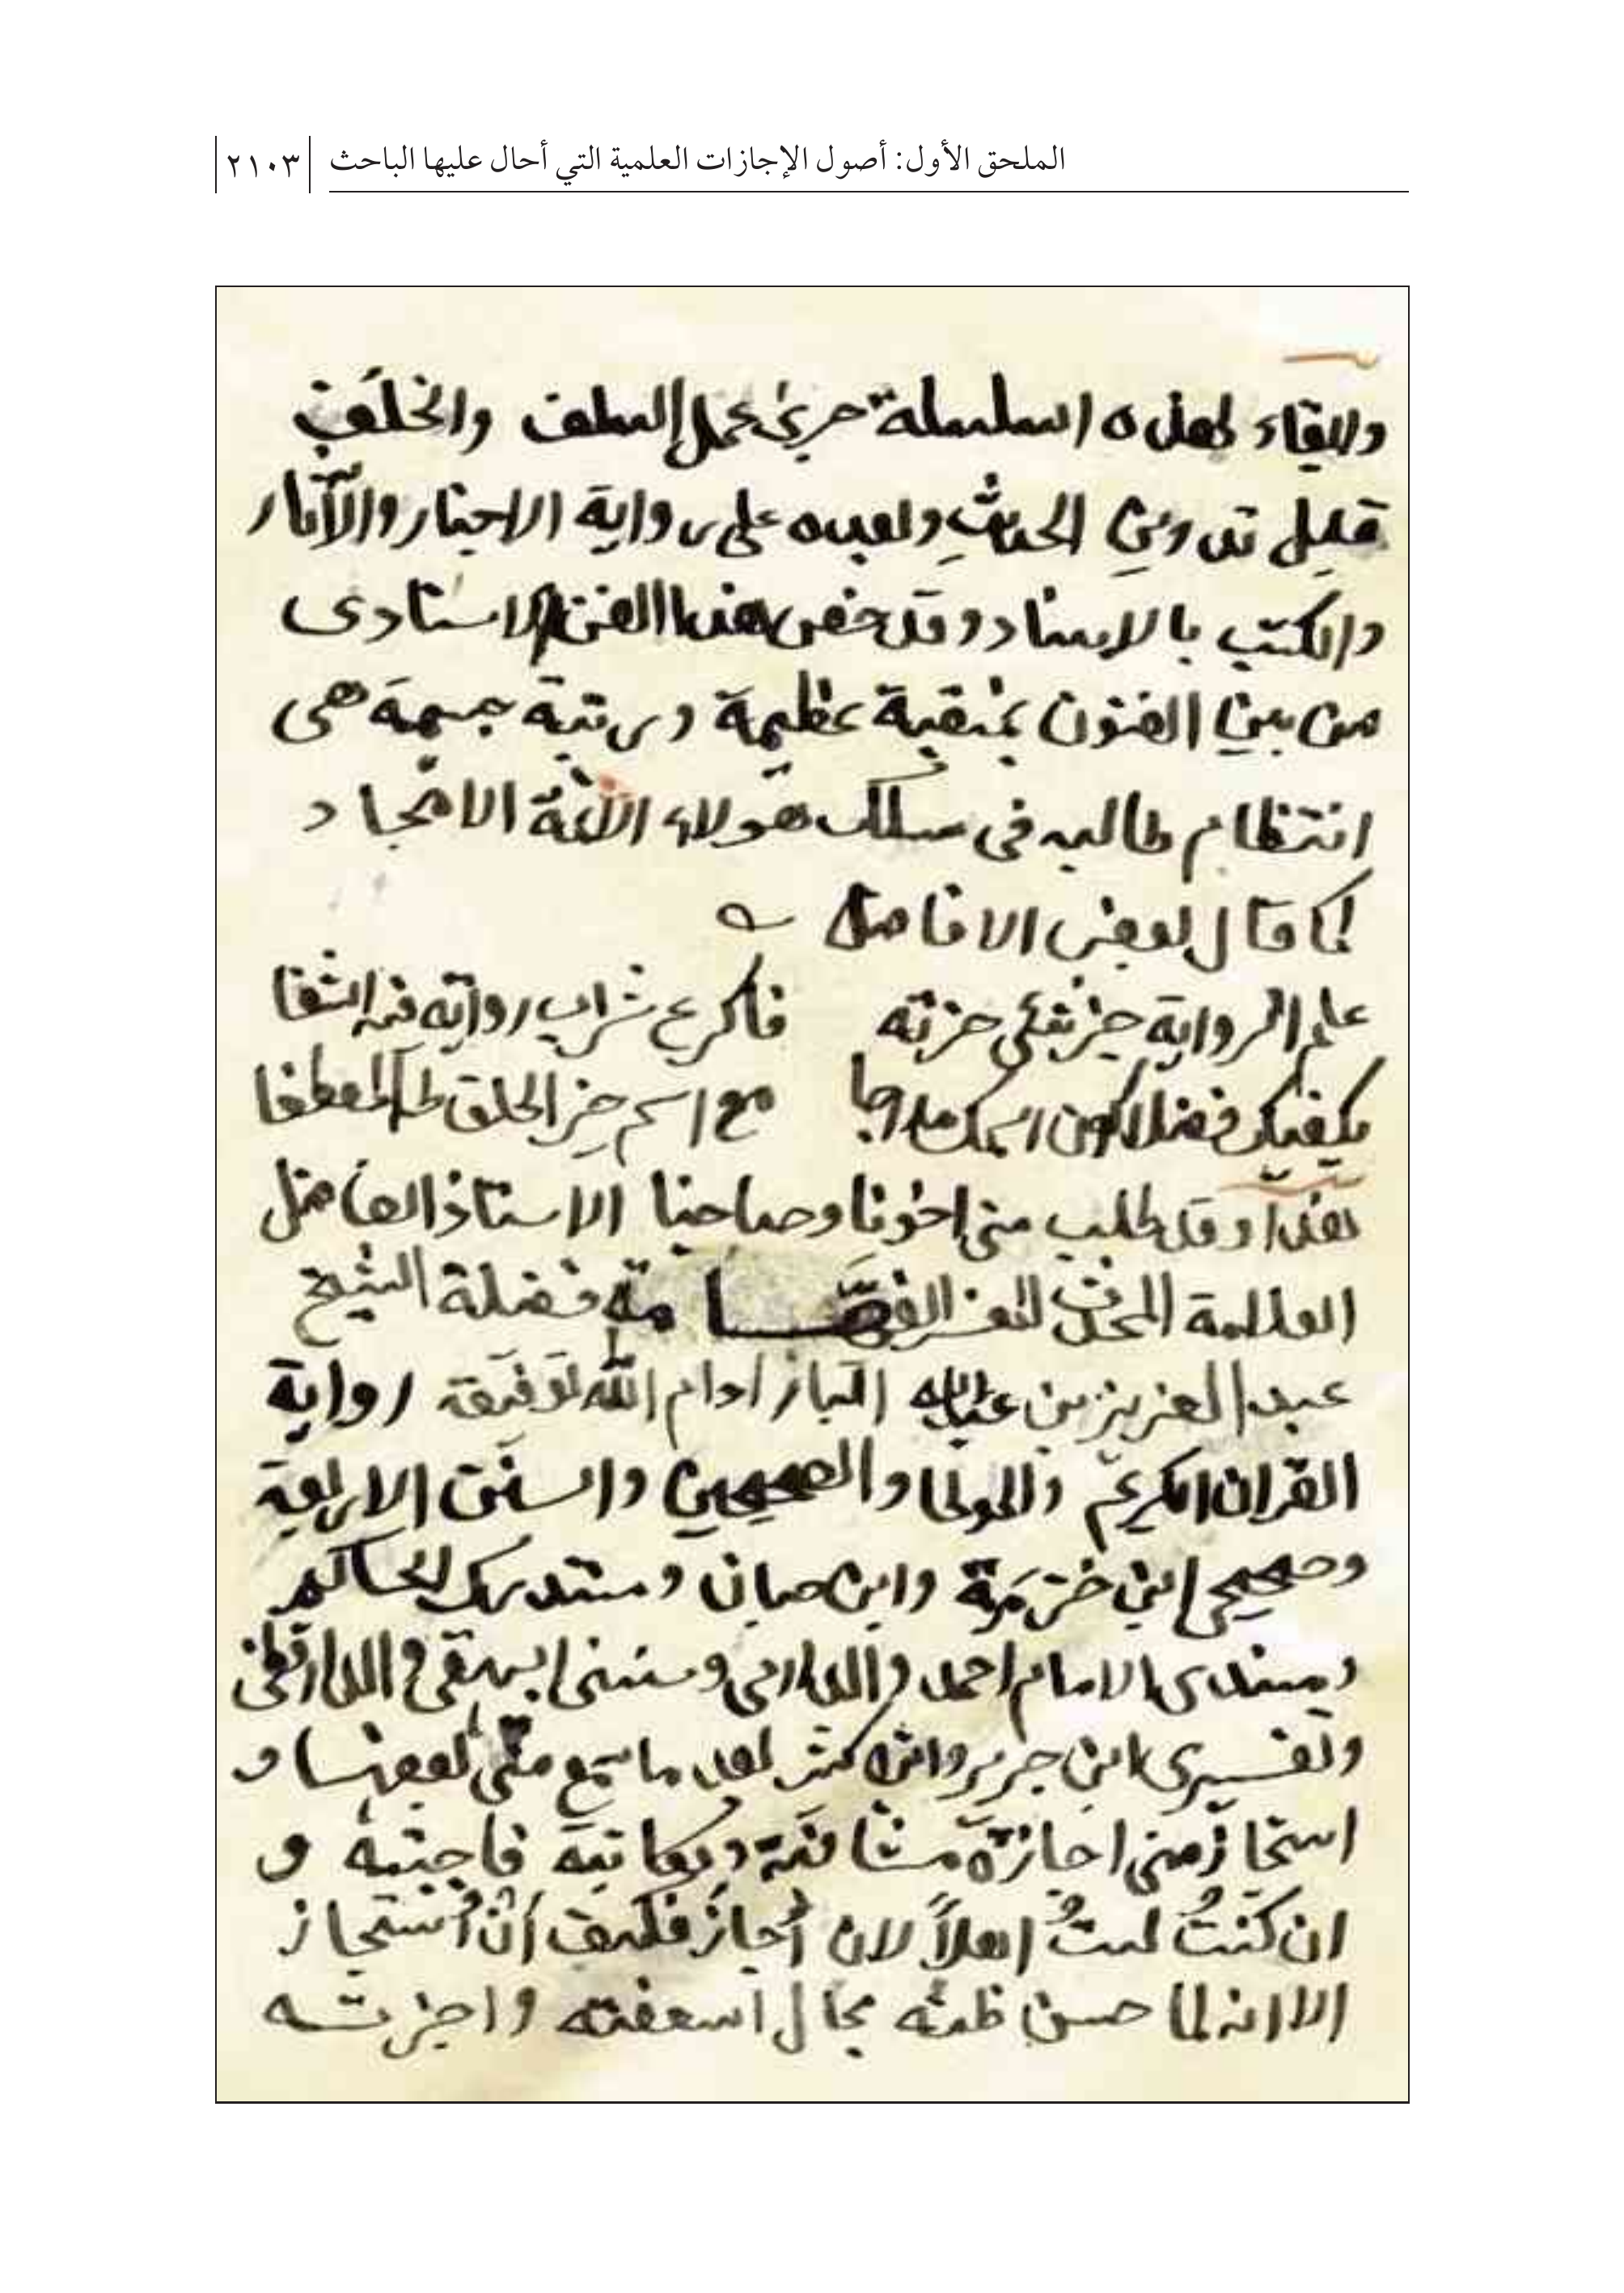 الملحق الأول: أصول الإجازات العلمية التي أحال عليها الباحث ٢١٠٣
وابقاء لهذه السلسلة جرى عمل السلف والخلف
قبل تدوين الحديث وبعده على رواية الاخبار والآثار
والكتب بالاسناد وقد خص هذا الفن الاسنادى
من بين الفنون بمنقبة عظيمة ورتبة جسيمة هى
انتظام طالبه فى سلك هولاء الأئمة الامجاد
كما قال بعض الافاضل
علم الرواية خير شئ حزته فاكرع شراب رواته فيه الشفا
يكفيك فضلا كون اسمك مدرجا مع اسم خير الخلق طه المصطفا
هذا وقد طلب منى اخونا وصاحبنا الاستاذ الفاضل
العلامة المحدث فضيلة الشيخ
عبد العزيز بن عبدالله الباز ادام الله توفيقه رواية
القران الكريم والموطا والصحيحين والسنن الاربعة
وصحيحى ابن خزيمة وابن حبان ومستدرك الحاكم
ومسندى الامام احمد والدارمى وسننى البيهقى والدارقطنى
وتفسيرى ابن جرير وابن كثير بعد ما سمع منى بعضها و
استجاز منى اجازة مشافهة ومكاتبة فاجبته و
ان كنتُ لستُ اهلاً لان أُجازَ فكيف أن أُستجاز
الا انه لما حسن ظنه بحال اسعفته واجزته